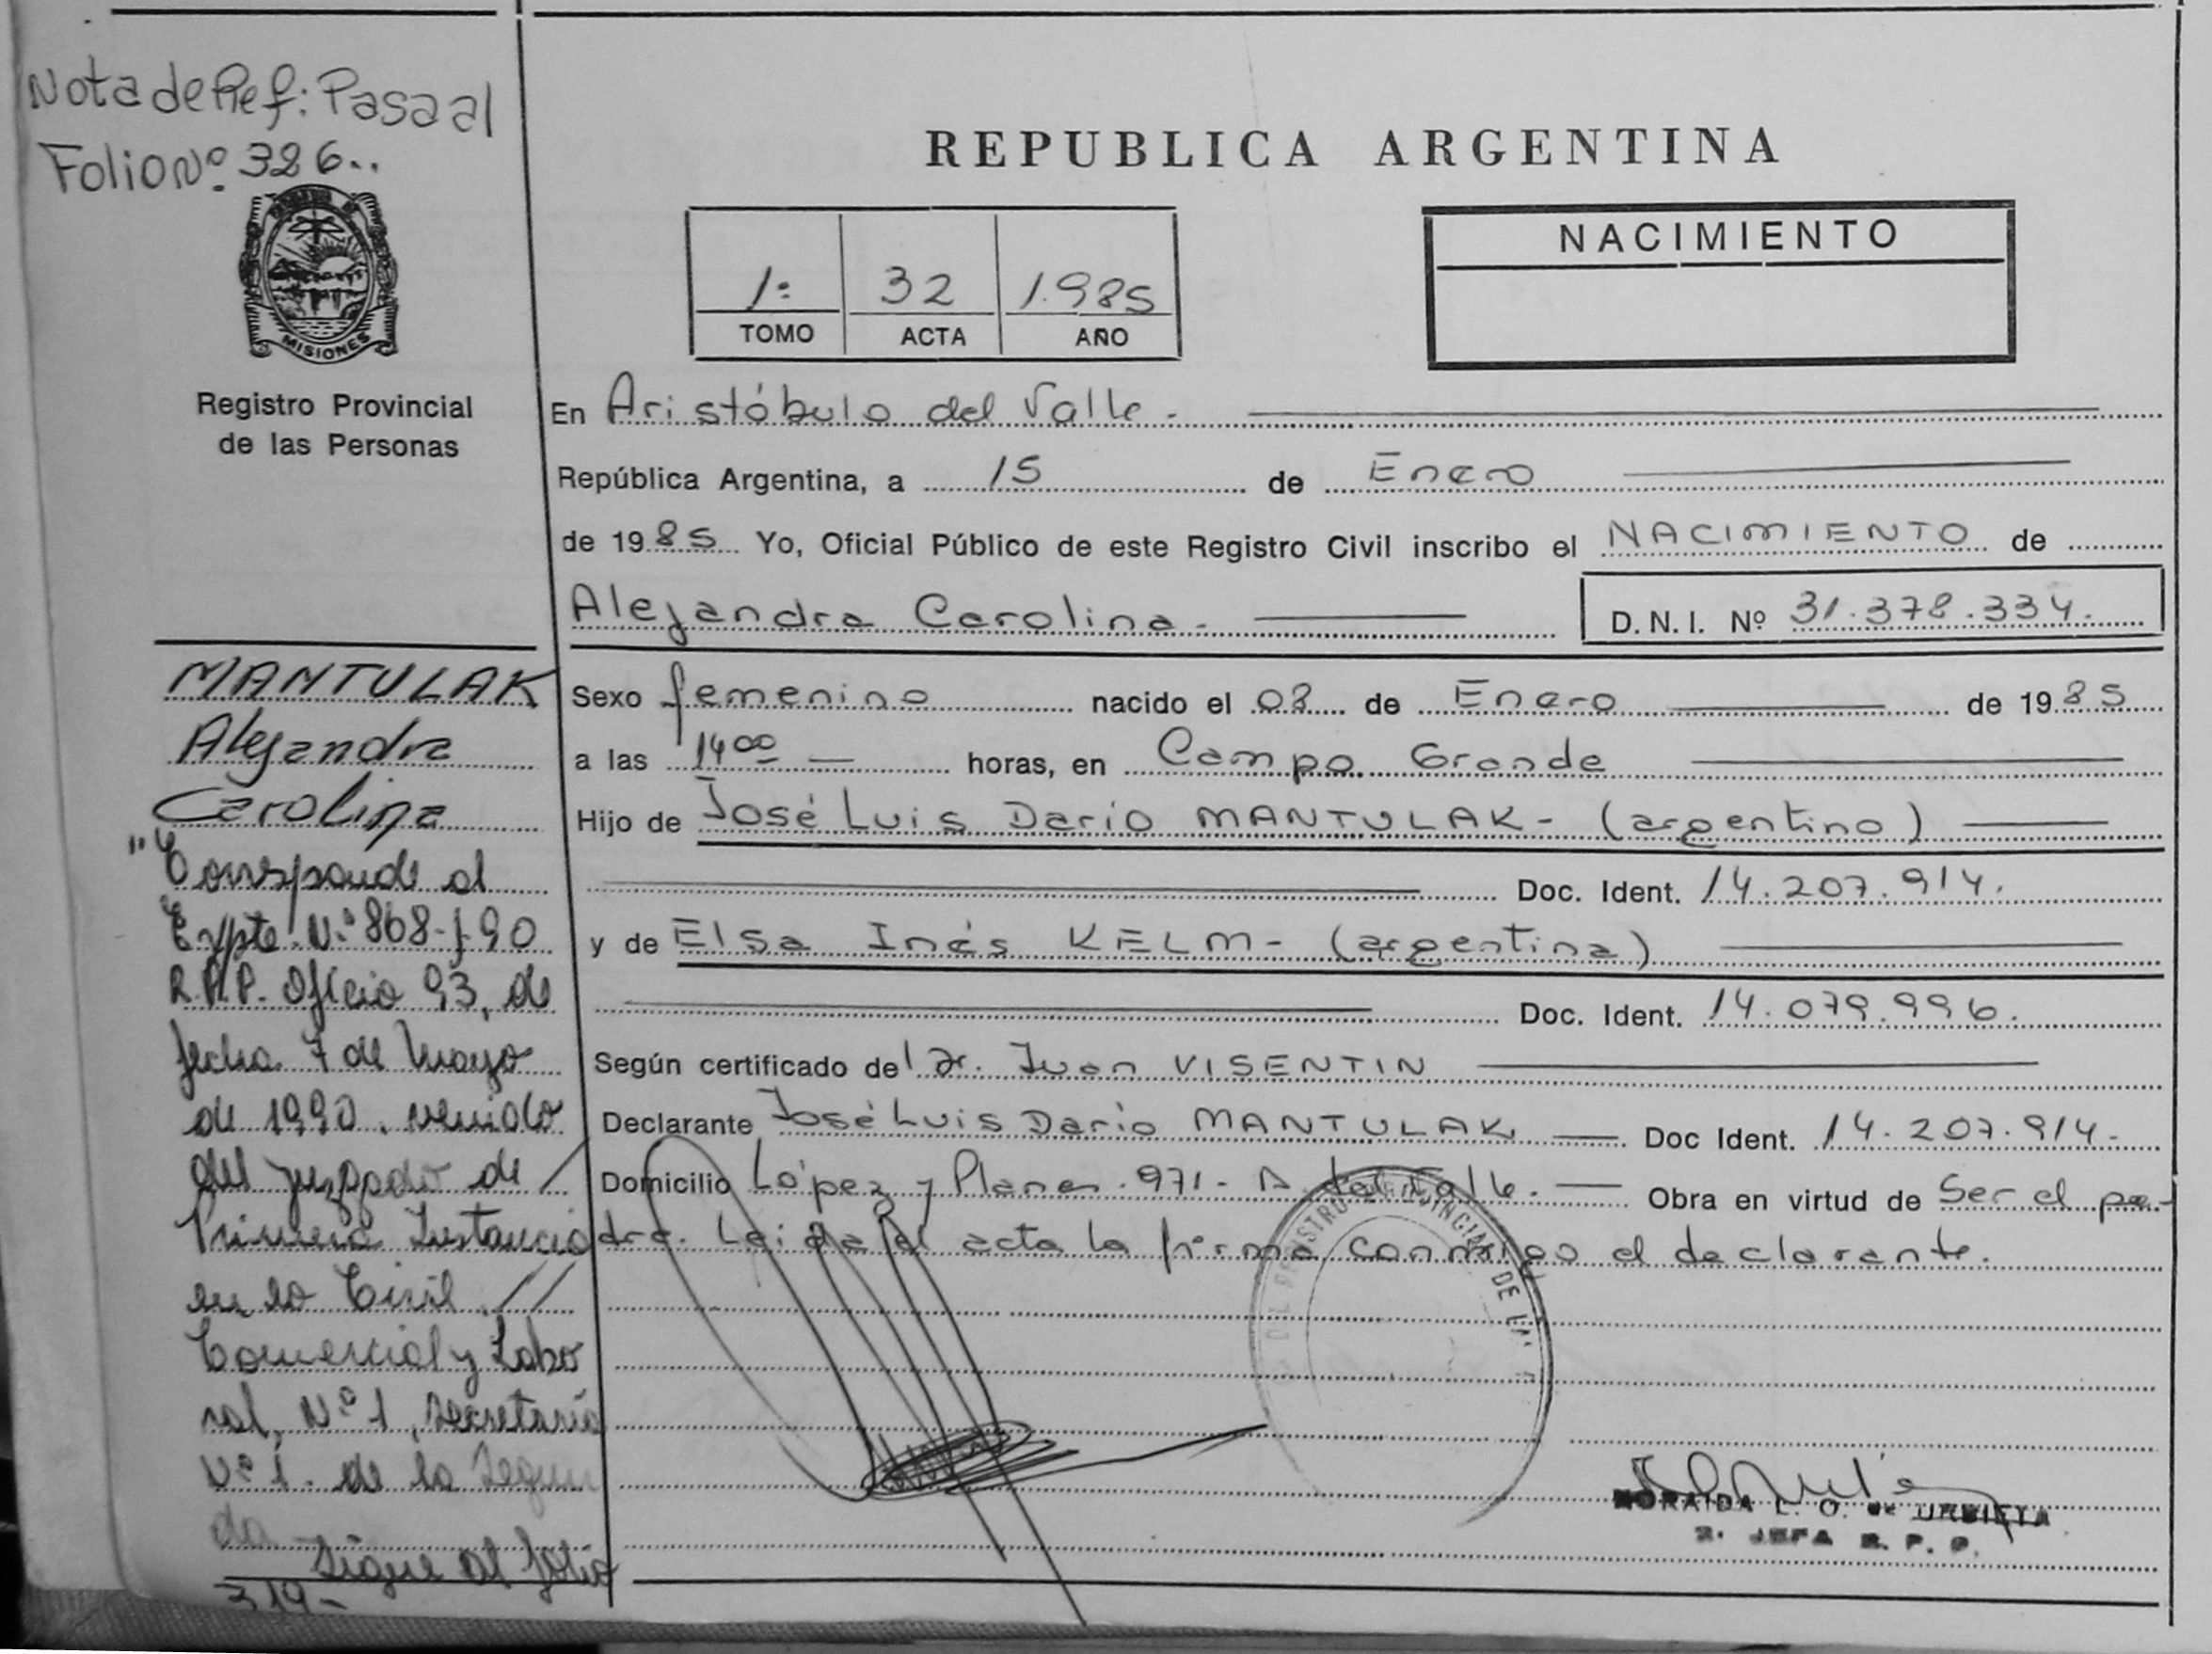 Nota de Ref: Pasa al
Folio Nº 326..
MISIONES
Registro Provincial
de las Personas
REPUBLICA ARGENTINA
1º 32 1.985
TOMO ACTA AÑO
NACIMIENTO
En Aristóbulo del Valle.
República Argentina, a 15 de Enero
de 1985 Yo, Oficial Público de este Registro Civil inscribo el NACIMIENTO de
Alejandra Carolina.
D. N. I. Nº 31.378.334.
Sexo femenino nacido el 08 de Enero de 1985
a las 14 00 horas, en Campo Grande
Hijo de José Luis Darío MANTULAK- (argentino)
Doc. Ident. 14.207.914.
y de Elsa Inés KELM- (argentina)
Doc. Ident. 14.079.996.
Según certificado del Dr. Juan VISENTIN
Declarante José Luis Darío MANTULAK Doc Ident. 14.207.914.
Domicilio López y Planes 971- A. del Valle. Obra en virtud de Ser el pa-
dre. Leida el acta la firma conmigo el declarante.
MANTULAK
Alejandra
Carolina
"Corresponde al
Expte Nº 868-J-90
R.P.P. Oficio 93, de
fecha 7 de Mayo
de 1990, venido
del juzgado de /
Primera Instancia
en lo Civil //
Comercial y Labo
ral, Nº 1, Secretaría
Nº 1. de la Segun
da
Sigue al folio
319-
DEL REGISTRO PROVINCIAL DE LAS
NORAIDA L. O. de URBIETA
2. JEFA R. P. P.